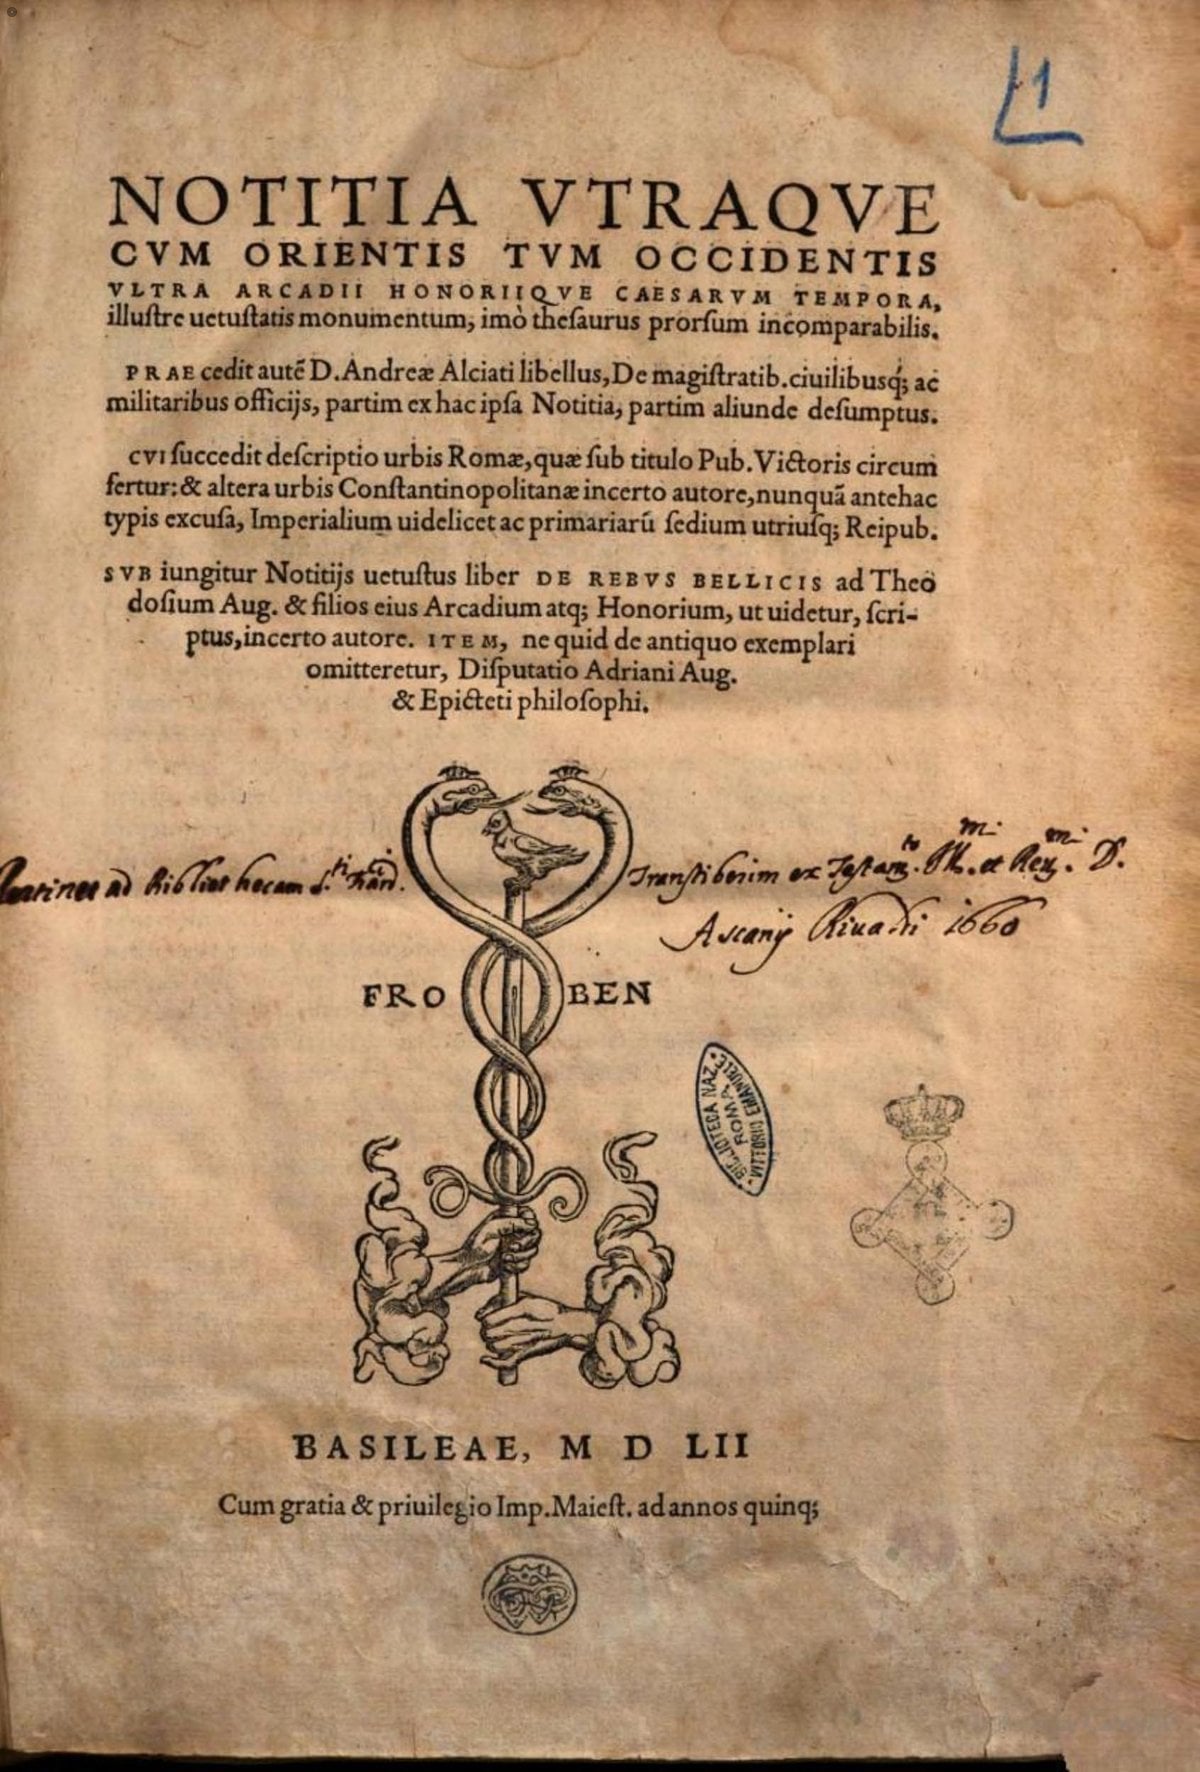 L1
NOTITIA VTRAQVE
CVM ORIENTIS TVM OCCIDENTIS
VLTRA ARCADII HONORIIQVE CAESARVM TEMPORA,
illuſtre uetuſtatis monumentum, imò theſaurus prorſum incomparabilis.
PRAE cedit autẽ D. Andreæ Alciati libellus, De magiſtratib. ciuilibusq́; ac
militaribus officijs, partim ex hac ipſa Notitia, partim aliunde deſumptus.
CVI ſuccedit deſcriptio urbis Romæ, quæ ſub titulo Pub. Victoris circum
fertur: & altera urbis Conſtantinopolitanæ incerto autore, nunquã antehac
typis excuſa, Imperialium uidelicet ac primariarũ ſedium utriuſq; Reipub.
SVB iungitur Notitijs uetuſtus liber DE REBVS BELLICIS ad Theo
doſium Aug. & filios eius Arcadium atq; Honorium, ut uidetur, ſcri-
ptus, incerto autore. ITEM, ne quid de antiquo exemplari
omitteretur, Diſputatio Adriani Aug.
& Epicteti philoſophi.
ad Bibliothecam S.ti Transtiberim ex Testam.to Ill.mi et Reu.mi D.
Ascanij Riualdi 1660
FRO BEN
BIBLIOTECA NAZ.
ROMA
VITTORIO EMANUELE
BASILEAE, M D LII
Cum gratia & priuilegio Imp. Maieſt. ad annos quinq;